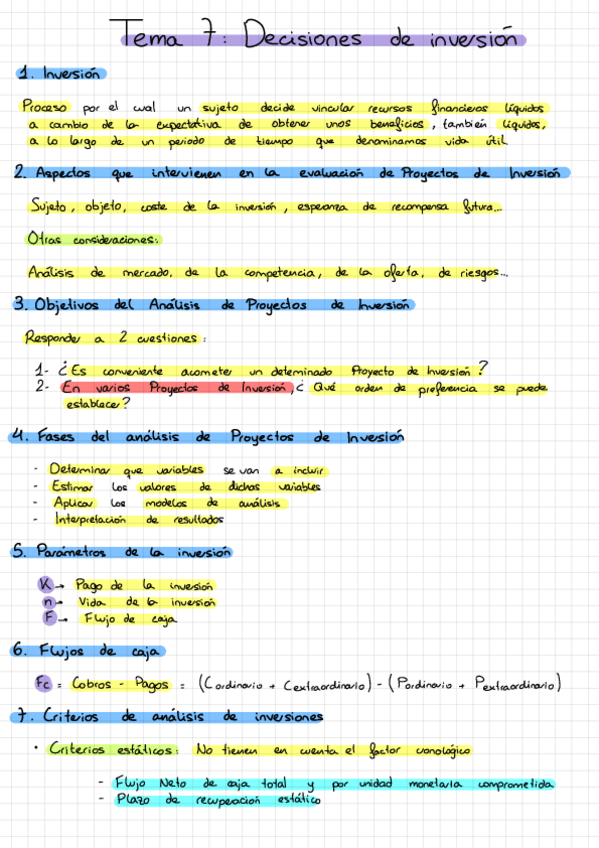 Tema 7: Decisiones de inversión
1. Inversión
Proceso por el cual un sujeto decide vincular recursos financieros líquidos
a cambio de la expectativa de obtener unos beneficios, también líquidos,
a lo largo de un periodo de tiempo que denominamos vida útil
2. Aspectos que intervienen en la evaluación de Proyectos de Inversión
Sujeto, objeto, coste de la inversión, esperanza de recompensa futura...
Otras consideraciones:
Análisis de mercado, de la competencia, de la oferta, de riesgos...
3. Objetivos del Análisis de Proyectos de Inversión
Responder a 2 cuestiones:
1- ¿Es conveniente acometer un determinado Proyecto de Inversión?
2- En varios Proyectos de Inversión, ¿Qué orden de preferencia se puede
establecer?
4. Fases del análisis de Proyectos de Inversión
- Determinar que variables se van a incluir
- Estimar los valores de dichas variables
- Aplicar los modelos de análisis
- Interpretación de resultados
5. Parámetros de la inversión
K → Pago de la inversión
n → Vida de la inversión
F → Flujo de caja
6. Flujos de caja
Fc = Cobros - Pagos = (Cordinario + Cextraordinario) - (Pordinario + Pextraordinario)
7. Criterios de análisis de inversiones
• Criterios estáticos: No tienen en cuenta el factor cronológico
- Flujo Neto de caja total y por unidad monetaria comprometida
- Plazo de recuperación estático